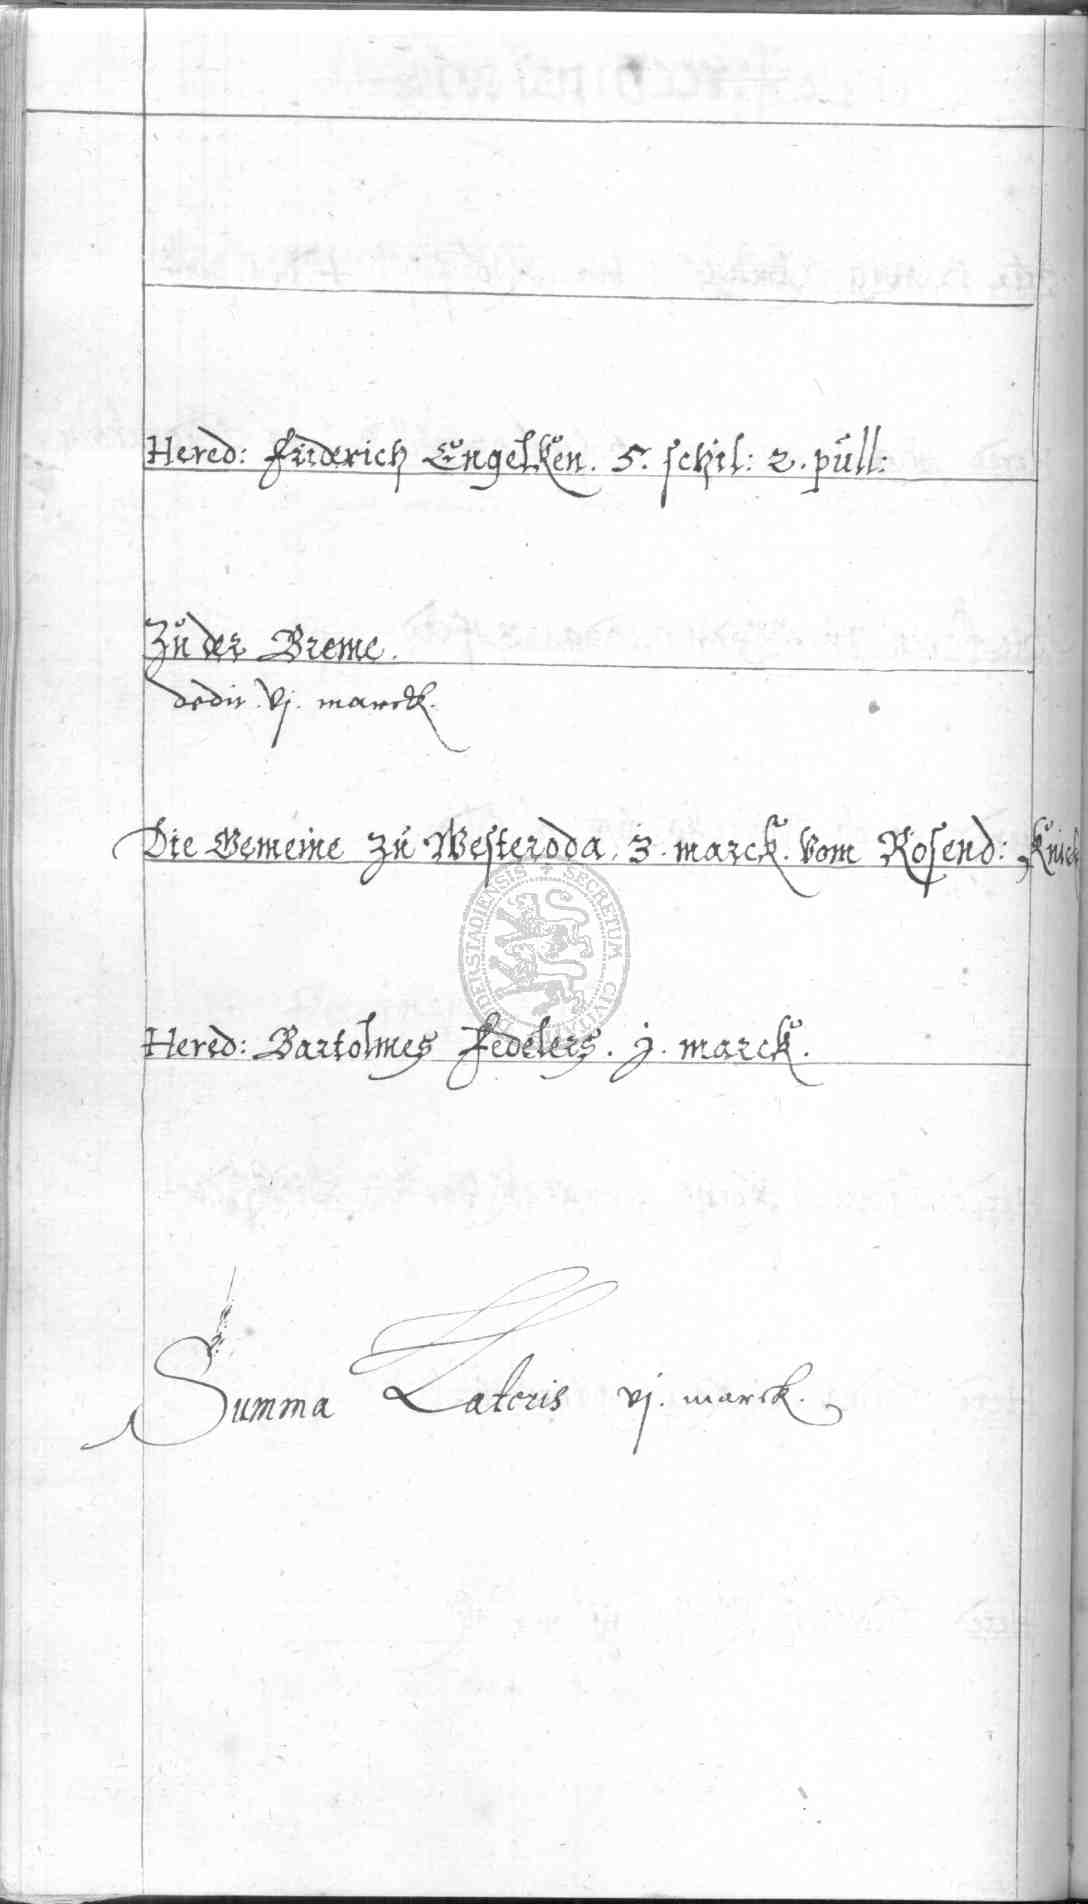 Hered: Friderich Engelken. 5. schil: 2. pull:
Zu der Breme.
dedit vj. marck.
Die Gemeine zu Westeroda. 3. marck. Vom Rosend: Knick
Hered: Bartolmes Fedelers. j. marck.
SECRETUM CIVITATIS DUDERSTADIENSIS
Summa Lateris vj. marck.